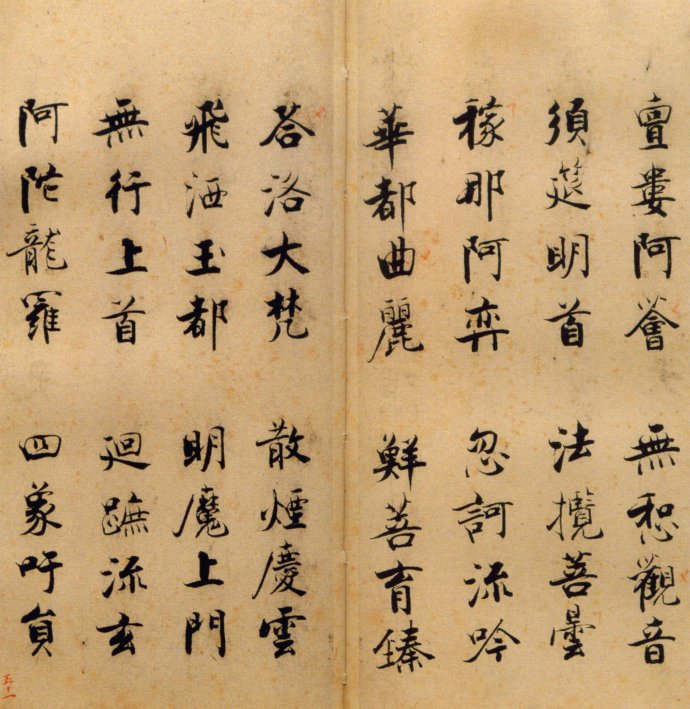 亶婁阿薈　無惒觀音
須筵明首　法攬菩曇
稼那阿弈　忽訶流吟
華都曲麗　鮮菩育臻
荅洛大梵　散煙慶雲
飛洒玉都　明魔上門
無行上首　迴蹠流玄
阿陁龍羅　四象吁員